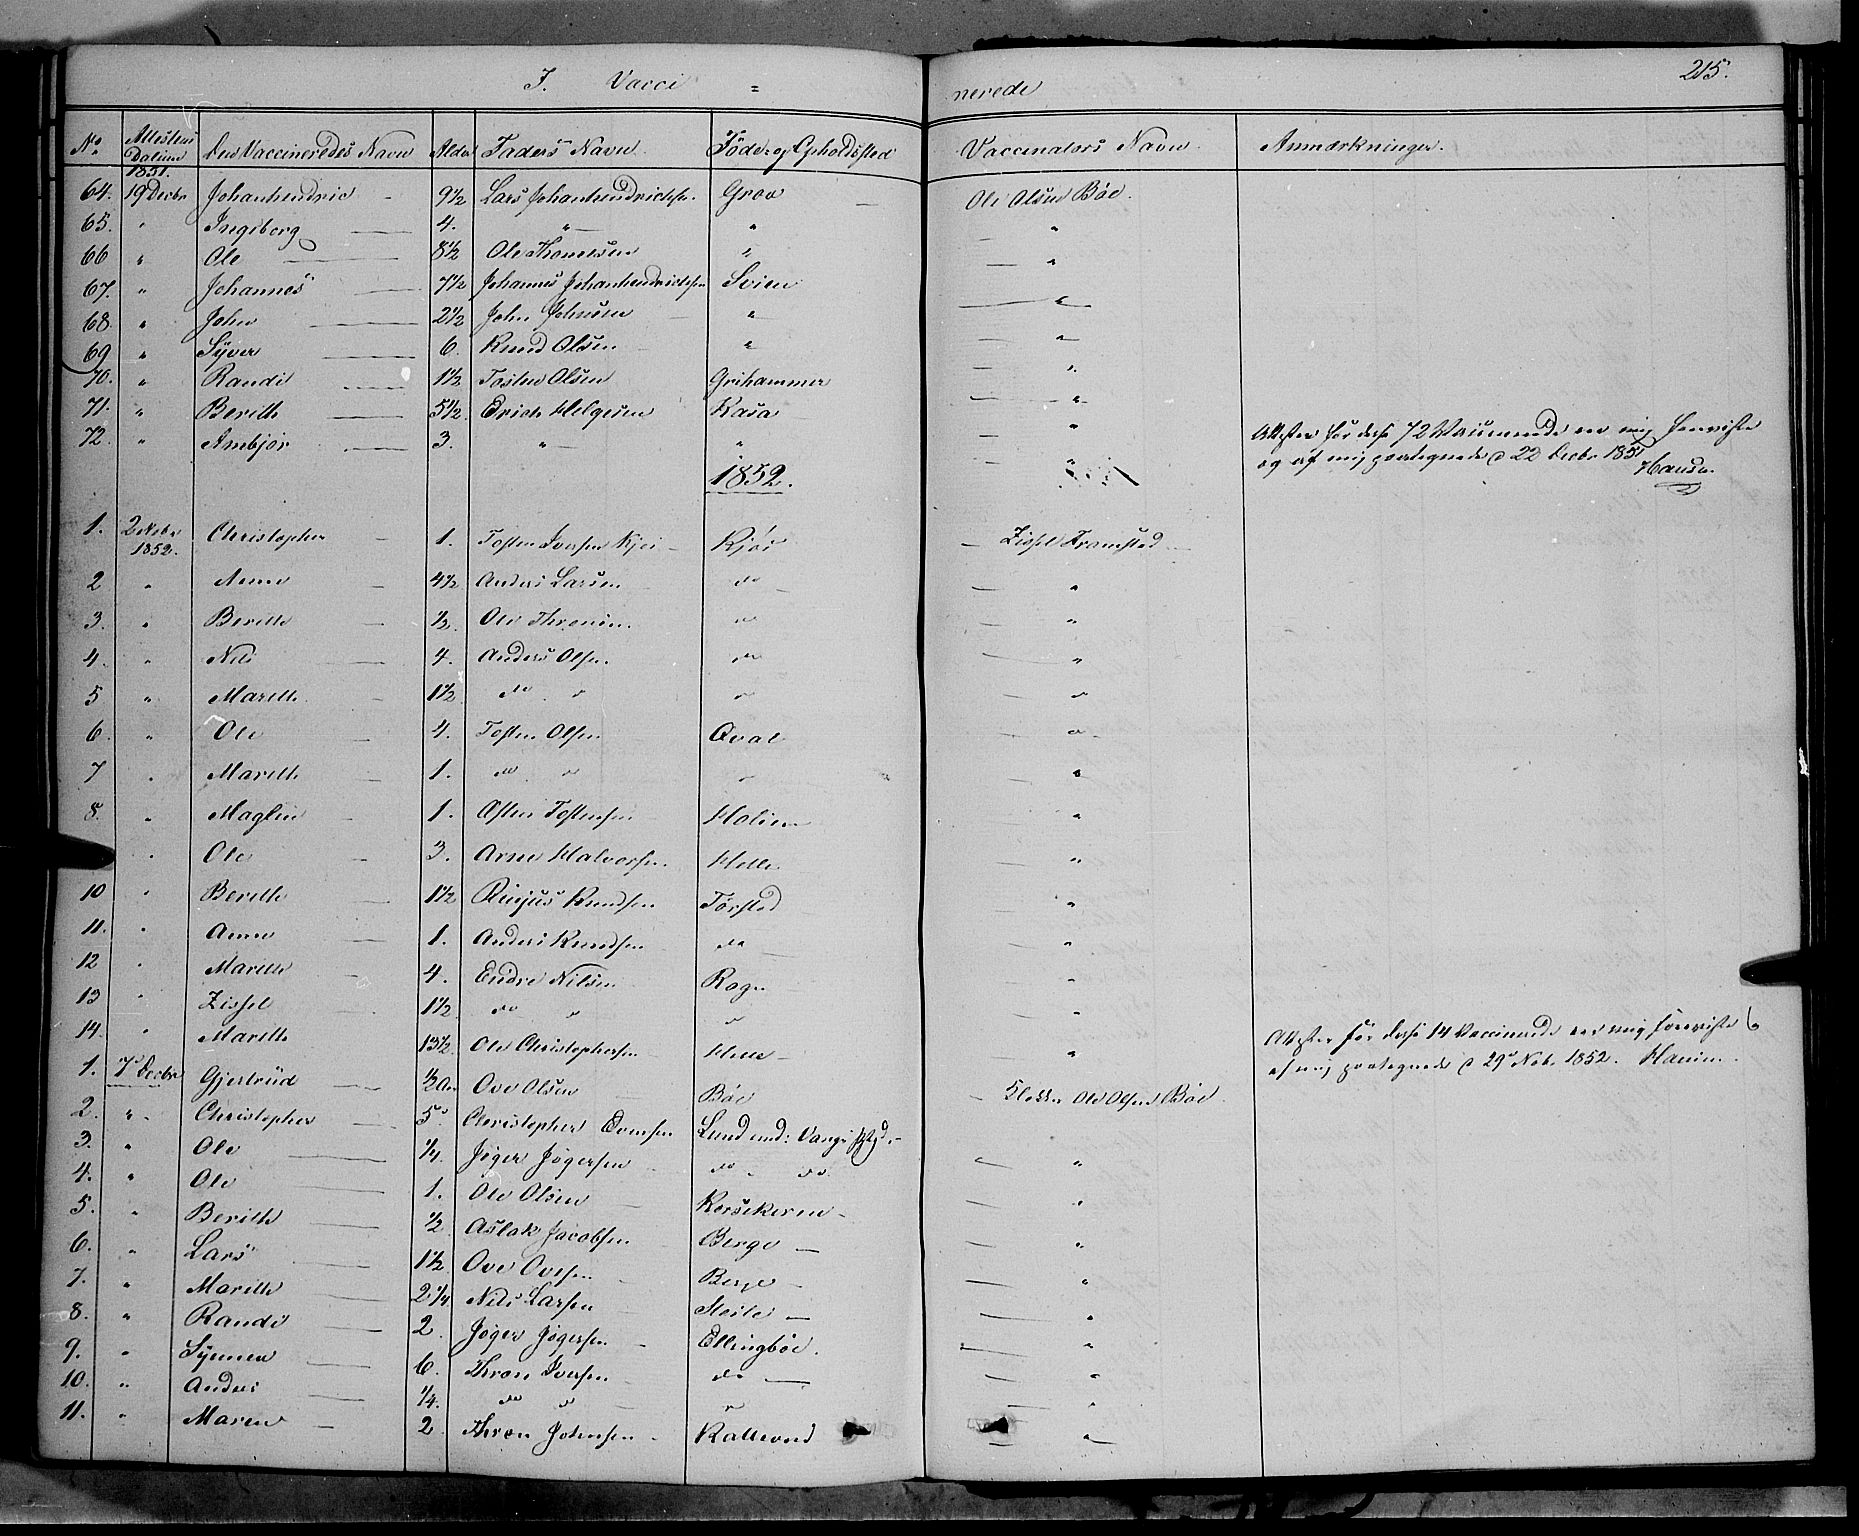 215.
I. Vacci = nerede
No. Attestens Datum Den Vaccineredes Navn Alder Faders Navn Føde- og Opholdssted Vaccinateurs Navn Anmærkninger.
1851.
64. 19 Decbr Johanhendric - 9 1/2 Lars Johanhendrichsen. Grov Ole Olsen Böe.
65. " Ingiborg 4. " " "
66 " Ole 8 1/2 Ole Thomesen " "
67. " Johannes 7 1/2 Johannes Johanhendrichsen Svien "
68. " John 2 1/2 John Johnsen " "
69 " Syver 6. Knud Olsen " "
70. " Randi 1 1/2 Tosten Olsen Grihammer "
71. " Berith 5 1/2 Erich Helgesen Kasa "
72. " Ambjør 3. " " "
Attester for disse 72 Vaccinerede ere mig foreviste
og af mig paategnede d 22 Decbr 1851 Hansen
1852.
1. 2 Nobr 1852. Christopher - 1. Tosten Iversen Kjøs - Kjøs Zissel Framstad
2 " Anne 4 1/2 Anders Larsen do "
3. " Berith 1/2 Ole Thronsen. do "
4. " Nils 4. Anders Olsen. do "
5 " Marith 1 1/2 do " " "
6. " Ole 4. Tosten Olsen Qvale "
7 " Marith 1. do " " "
8. " Maglin 1. Asten Tostensen Holien "
" Ole 3. Arne Halvorsen. Helle "
10 " Berith 1 1/2 Knudsen Törsted "
11. " Anne 1. Anders Knudsen do "
12 " Marith 4. Endre Nilsen Rogn "
13 " Zissel 1 1/2 do " " "
14. " Marith 13 1/2 Ole Christophersen Helle "
Attester for disse 14 Vaccinerede ere mig foreviste &
af mig paategnede d 29 Nobr. 1852. Hansen.
1. 7de Decbr Gjertrud 1/2 Aar Ove Olsen Böe Klokker Ole Olsen Böe.
2. " Christopher 5. Christopher Evensen Lund
3. " Ole 1/4 Jøger Jøgersen do do "
4. " Ole 1. Ole Olsen Kersekeren "
5. " Berith 1/2 Aslak Jacobsen Berge "
6. " Lars 1 1/2 Ove Ovesen Berge "
7. " Marith 2 1/4 Nils Larsen "
8. " Randi 2. Jøger Jøgersen Ellingböe. "
9. " Synnev 6. Thron Iversen do "
10. " Anders 1/4. do " " "
11. " Maren 2 Thron Johnsen Kattevord "